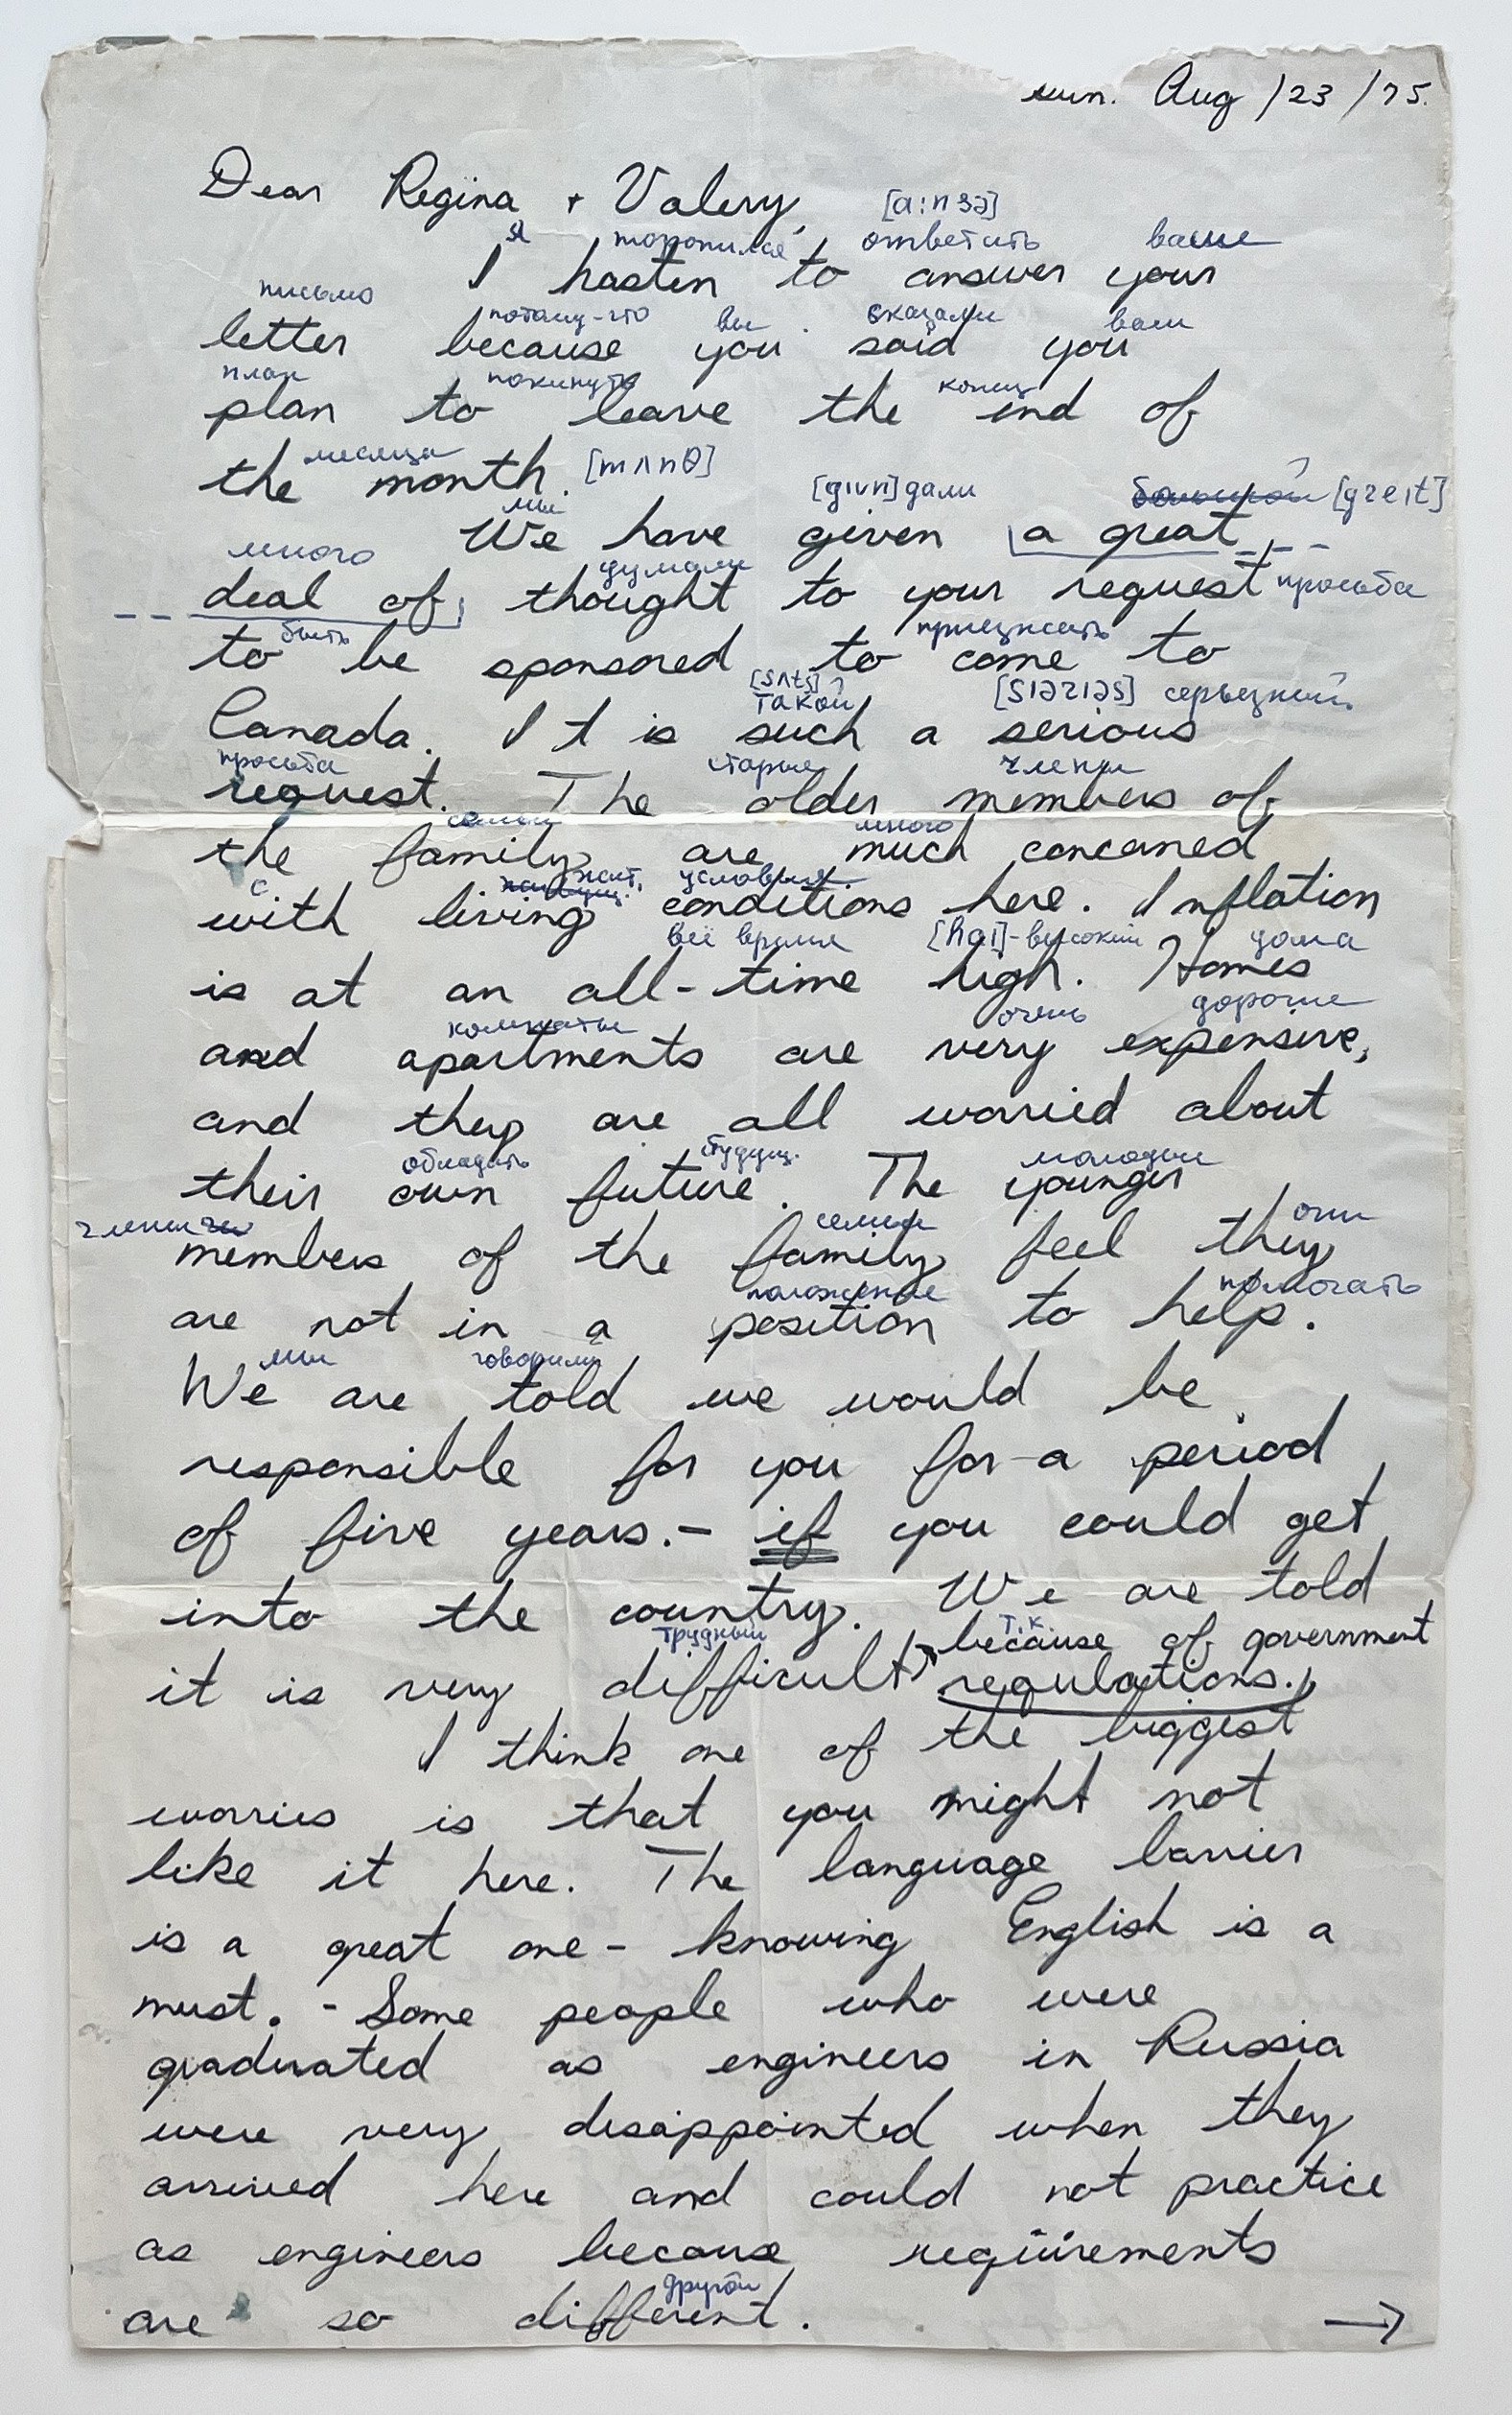 sun. Aug /23 /75.
Dear Regina + Valery,
[a:nsə]
я торопился ответить ваше
I hasten to answer your
письмо потому-что вы сказали ваш
letter because you said you
план покинуть конец
plan to leave the end of
месяца [mʌnθ]
the month.
мы [givn] дали большой [greit]
We have given a great
много думали просьба
deal of thought to your request
быть приезжать
to be sponsored to come to
[sʌtʃ] такой [siəriəs] серьезный
Canada. It is such a serious
просьба старые члены
request. The older members of
семьи много
the family are much concerned
с жит. условия
with living conditions here. Inflation
всё время [hai]-высокий дома
is at an all-time high. Homes
комнаты очень дорогие
and apartments are very expensive,
and they are all worried about
обладать будущ. молодые
their own future. The younger
члены семьи они
members of the family feel they
положение помогать
are not in a position to help.
мы говорили
We are told we would be
responsible for you for a period
of five years. - if you could get
into the country. We are told
трудный т.к.
it is very difficult because of government
regulations.
I think one of the biggest
worries is that you might not
like it here. The language barrier
is a great one - knowing English is a
must. - Some people who were
graduated as engineers in Russia
were very disappointed when they
arrived here and could not practice
as engineers because requirements
другой
are so different. →